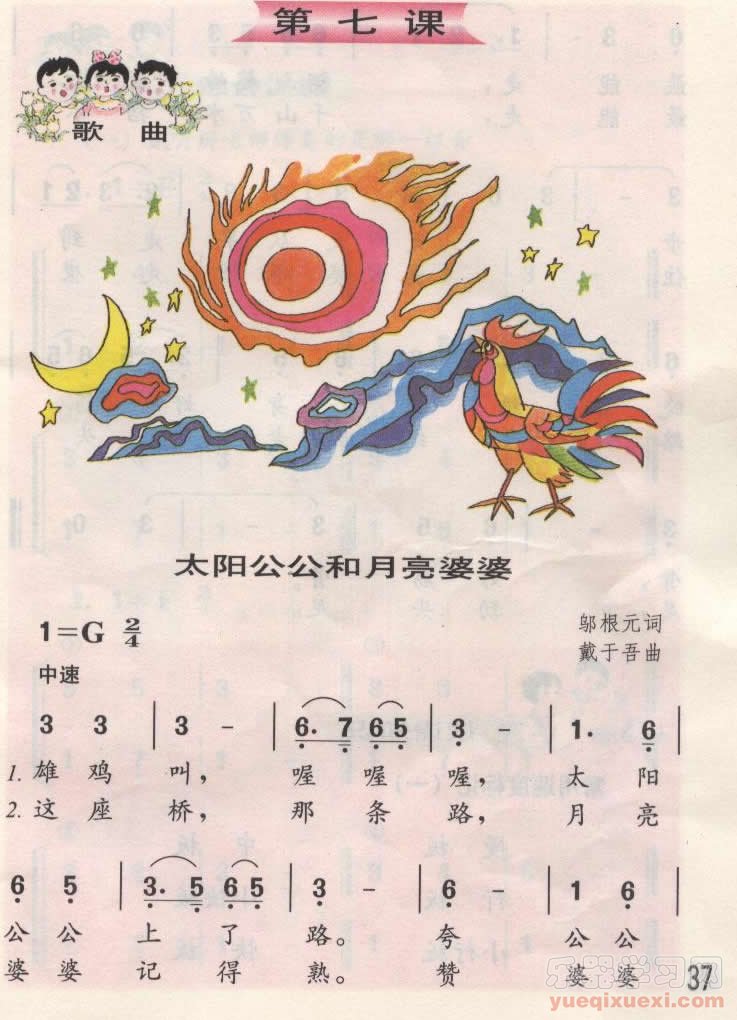 第七课
歌曲
太阳公公和月亮婆婆
1=G 2/4
邬根元词
中速
戴于吾曲
3 3 | 3 - | 6. 7 6 5 | 3 - | 1. 6 |
1. 雄鸡叫， 喔喔喔， 太阳
2. 这座桥， 那条路， 月亮
6 5 | 3. 5 6 5 | 3 - | 6 - | 1 6 |
公公上了路。 夸公公
婆婆记得熟。 赞婆婆
37
乐器学习网
yueqixuexi.com